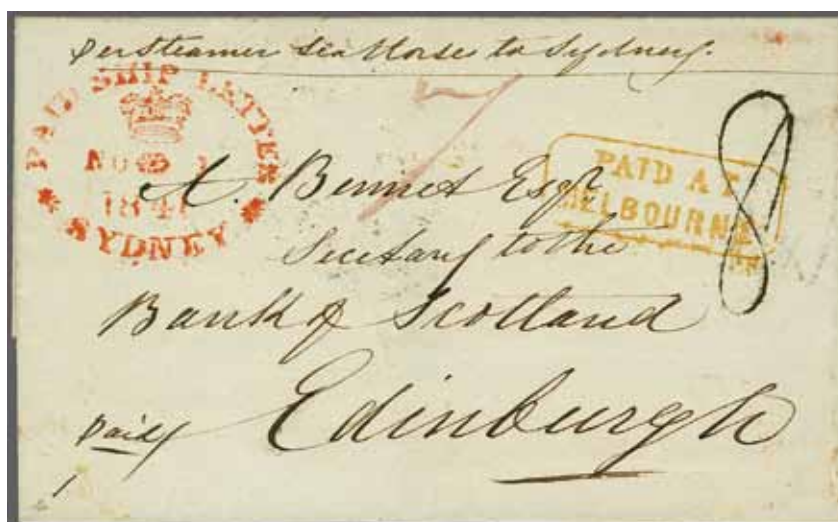 per Steamer Sea Horse to Sydney.
PAID SHIP LETTER
7
NO 1
1841
* SYDNEY *
PAID AT
MELBOURNE
8
A. Bennet Esqr
Secetary to the
Bank of Scotland
Edinburgh
paid
1